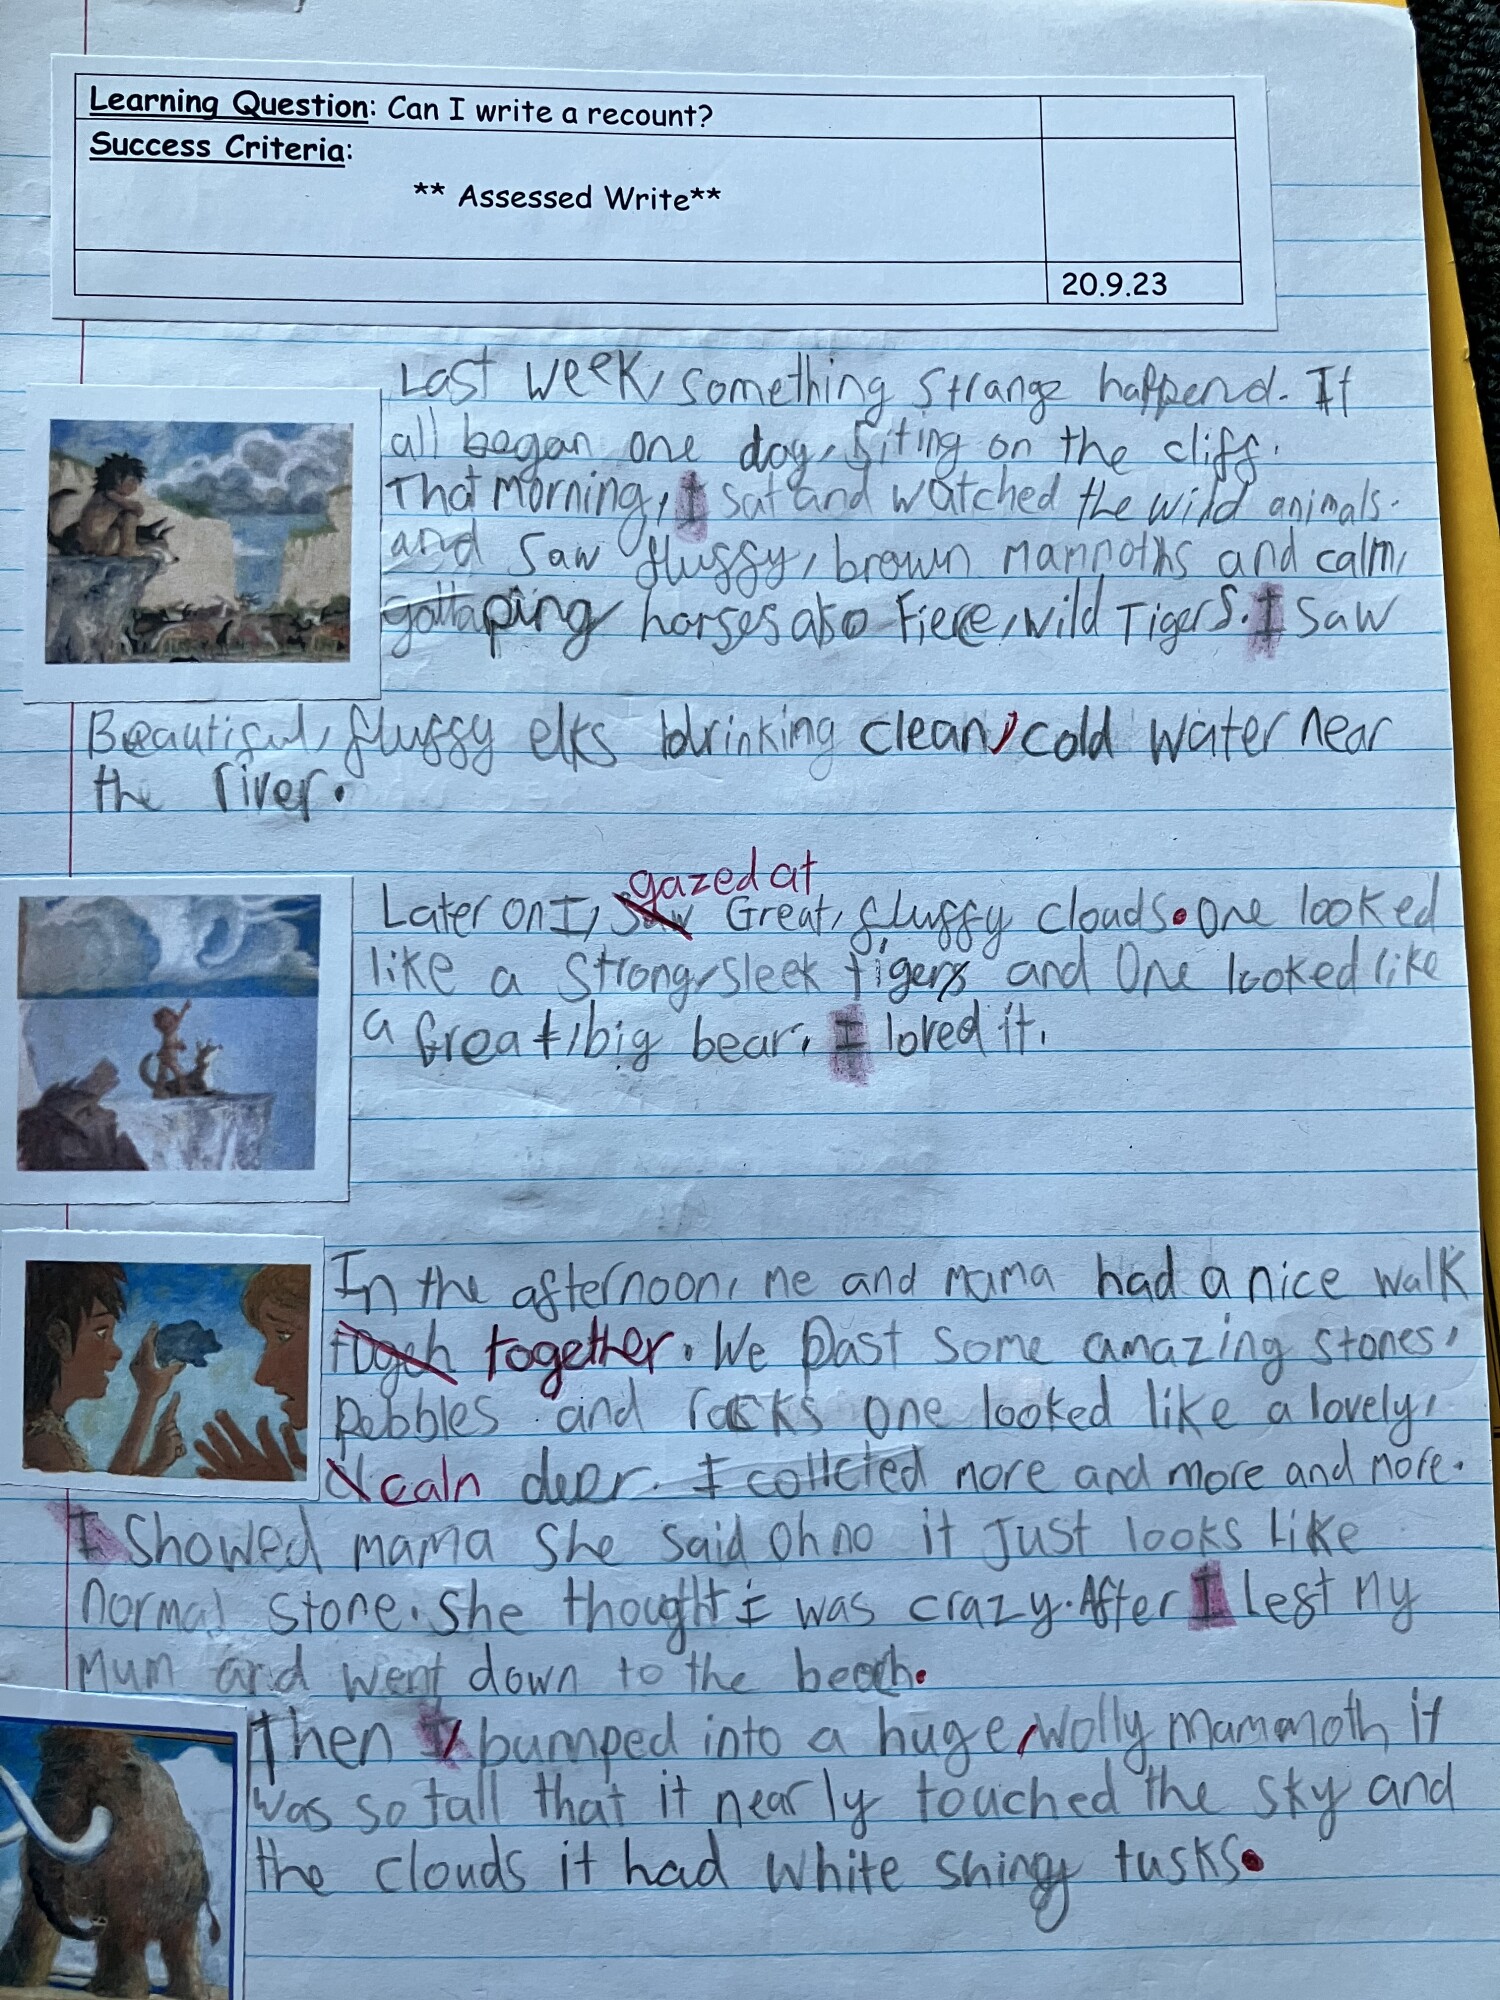 Learning Question: Can I write a recount?
Success Criteria:
** Assessed Write**
20.9.23
Last week, something strange happend. It
all began one day, siting on the cliff.
That morning, I sat and watched the wild animals.
and saw fluffy, brown mammoths and calm,
gallaping horses also fierce, wild Tigers. I saw
Beautiful, fluffy elks drinking clean, cold water near
the river.
gazed at
Later on I, saw Great, fluffy clouds. One looked
like a strong, sleek tigers and One looked like
a Great, big bear. I loved it.
In the afternoon, me and mama had a nice walk
togeh together. We past some amazing stones,
pebbles and rocks one looked like a lovely,
caln deer. I collcted more and more and more.
I showed mama she said oh no it Just looks like
normal stone. she thought I was crazy. After I left my
mum and went down to the beach.
Then I bumped into a huge, wolly mammoth it
was so tall that it nearly touched the sky and
the clouds it had white shiny tusks.